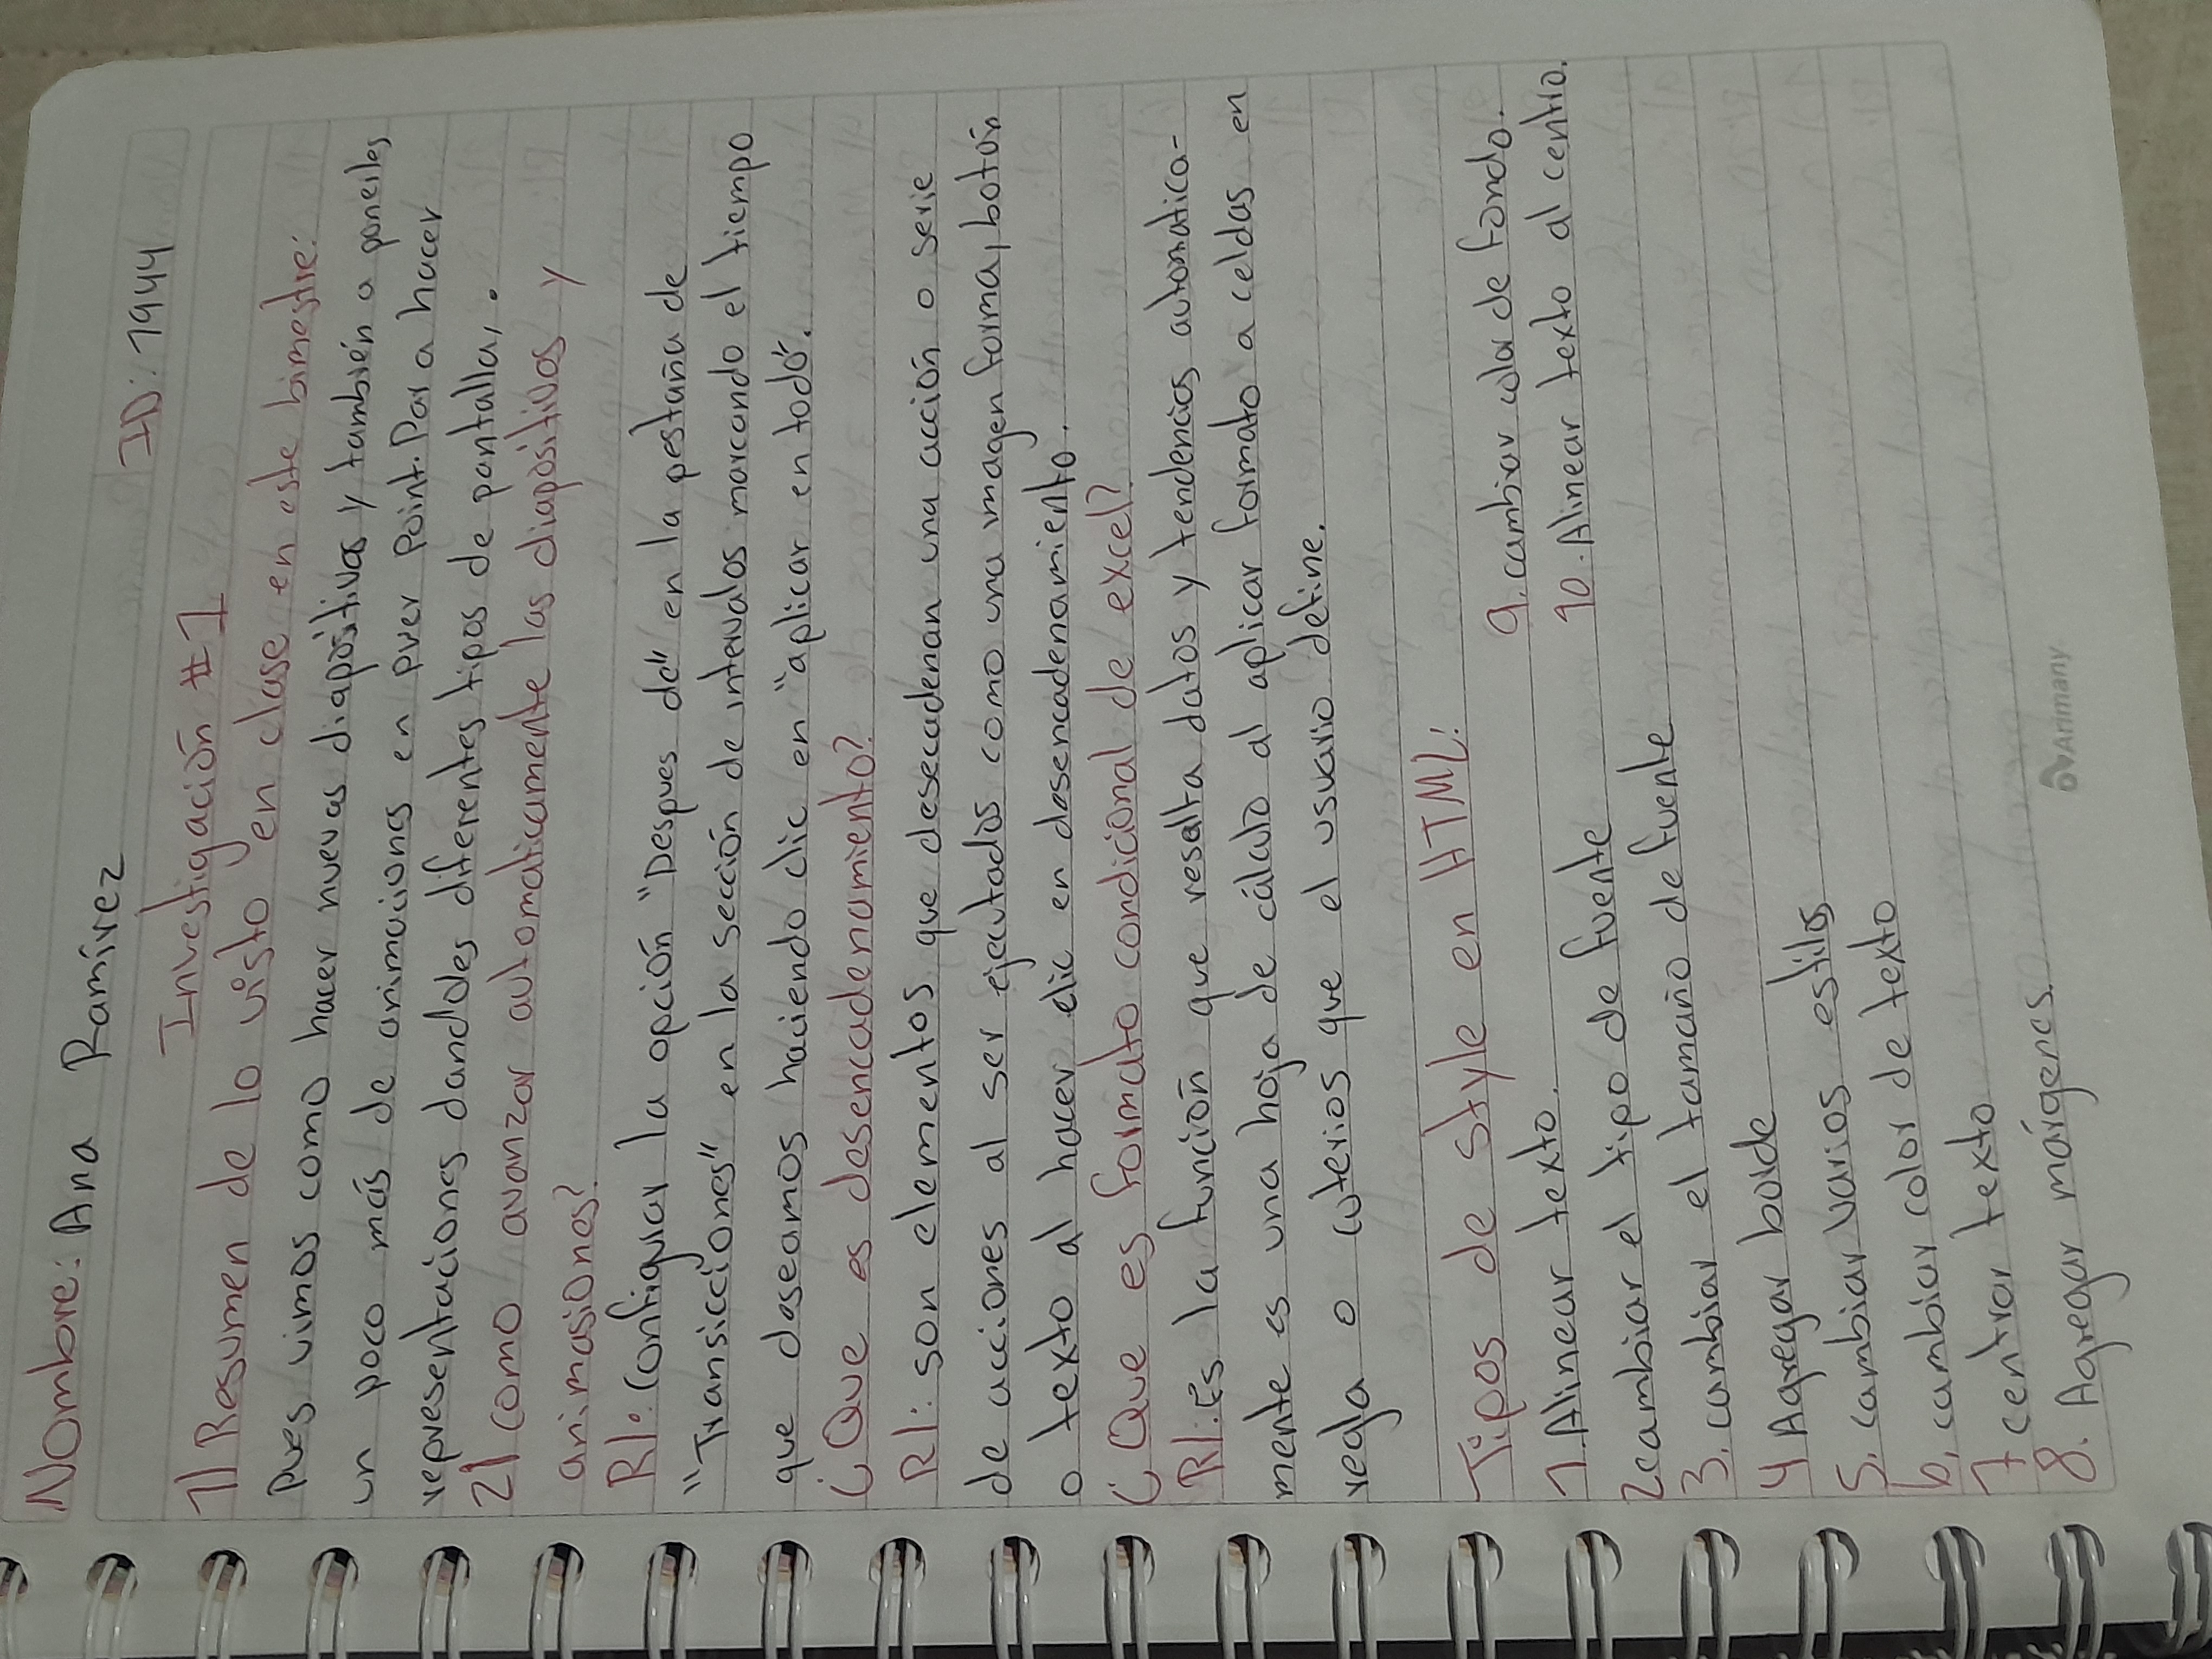 Nombre: Ana Ramírez
ID: 1944
Investigación #1
1) Resumen de lo visto en clase en este bimestre:
Pues vimos como hacer nuevas diapositivas y también a ponerles
un poco más de animaciones en pwer point. Para hacer
representaciones dandoles diferentes tipos de pantalla, .
2) como avanzar automaticamente las diapositivas y
animasiones?
R/: Configurar la opción "Despues de" en la pestaña de
"Transicciones" en la sección de intervalos marcando el tiempo
que deseamos haciendo clic en "aplicar en todo".
¿Que es desencadenamiento?
R/: son elementos que desecadenan una acción o serie
de acciones al ser ejecutados como una imagen forma, botón
o texto al hacer clic en desencadenamiento.
¿Que es formato condicional de excel?
R/: Es la función que resalta datos y tendencias automatica-
mente es una hoja de cálculo al aplicar formato a celdas en
regla o criterios que el usuario define.
Tipos de style en HTML:
1. Alinear texto.
2 cambiar el tipo de fuente
3. cambiar el tamaño de fuente
4 Agregar borde
5. cambiar varios estilos
6. cambiar color de texto
7 centrar texto
8. Agregar márgenes.
9. cambiar color de fondo.
10. Alinear texto al centro.
Artmany